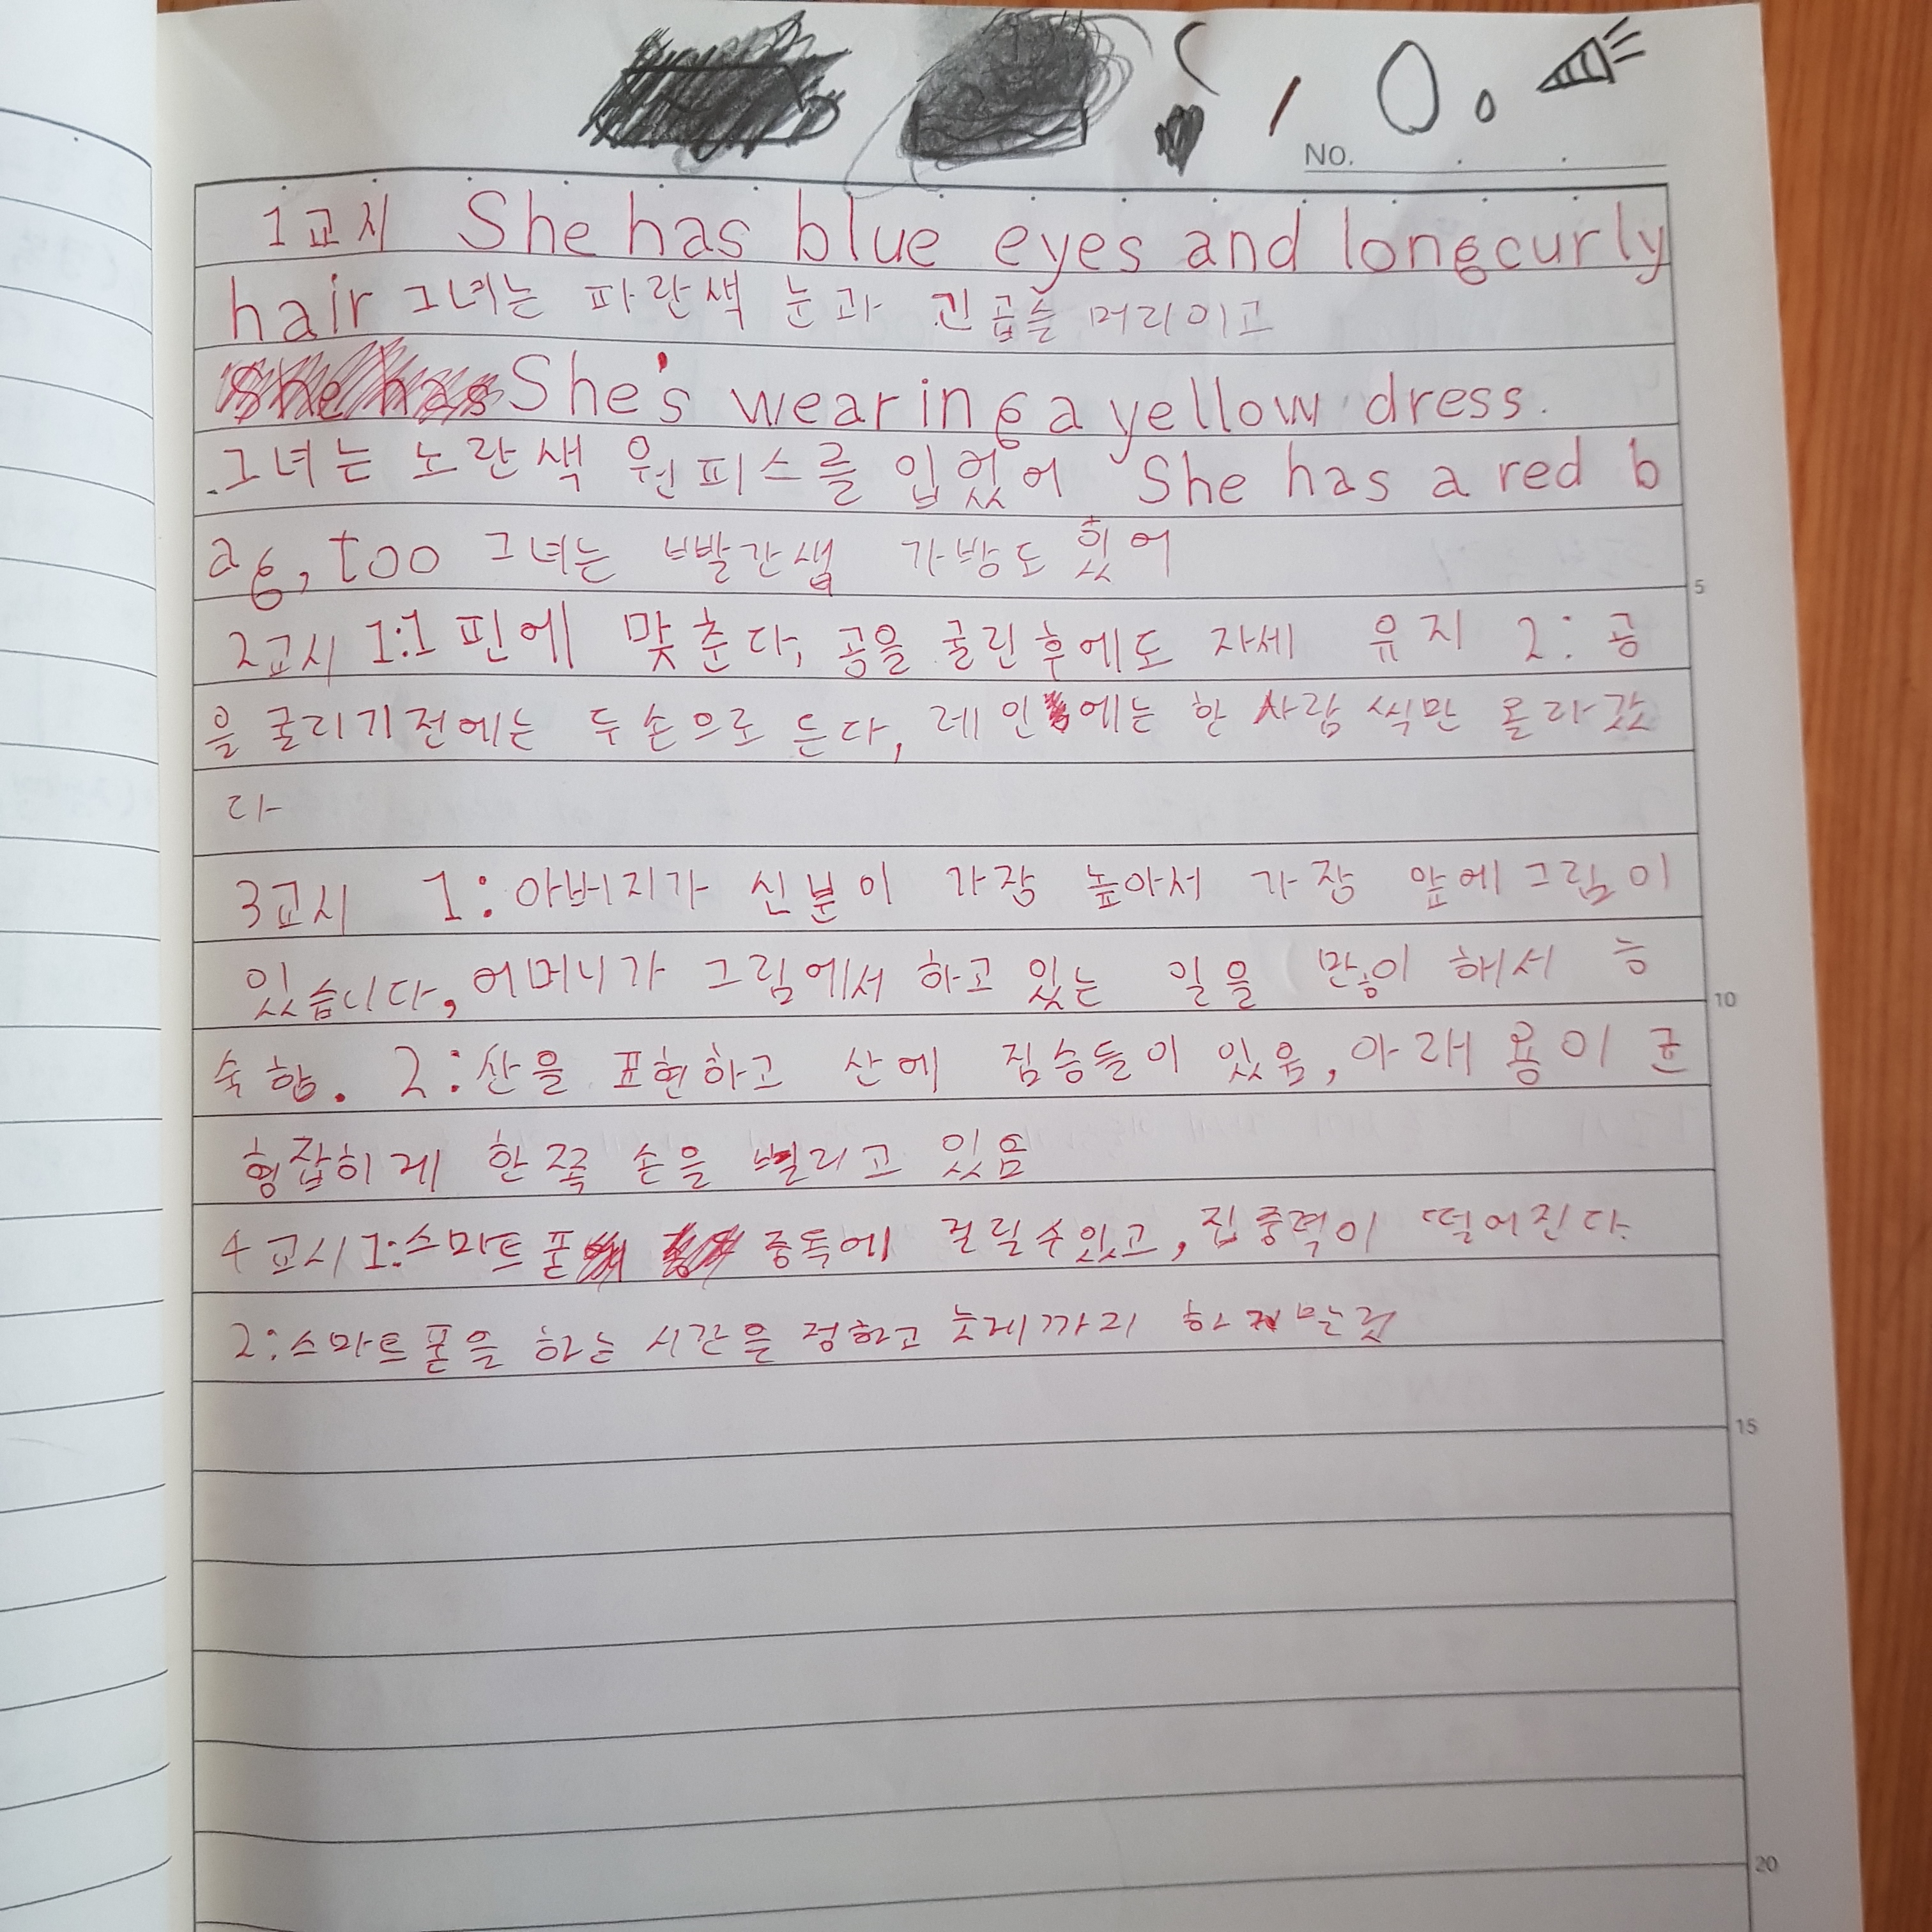 NO.
1교시 She has blue eyes and long curly
hair 그녀는 파란색 눈과 긴 곱슬 머리이고
She has She's wearing a yellow dress.
그녀는 노란색 원피스를 입었어 She has a red b
ag, too 그녀는 빨간색 가방도 있어
2교시 1:1핀에 맞춘다, 공을 굴린후에도 자세 유지 2: 공
을 굴리기전에는 두 손으로 든다, 레인에는 한 사람 씩만 올라갔
다
5
3교시 1: 아버지가 신분이 가장 높아서 가장 앞에 그림이
있습니다, 어머니가 그림에서 하고 있는 일을 많이 해서 능
10
숙함. 2: 산을 표현하고 산에 짐승들이 있음, 아래 용이 균
형잡히게 한쪽 손을 벌리고 있음
4교시 1: 스마트폰 중독에 걸릴수있고, 집중력이 떨어진다.
2: 스마트폰을 하는 시간을 정하고 늦게까지 하지
15
20